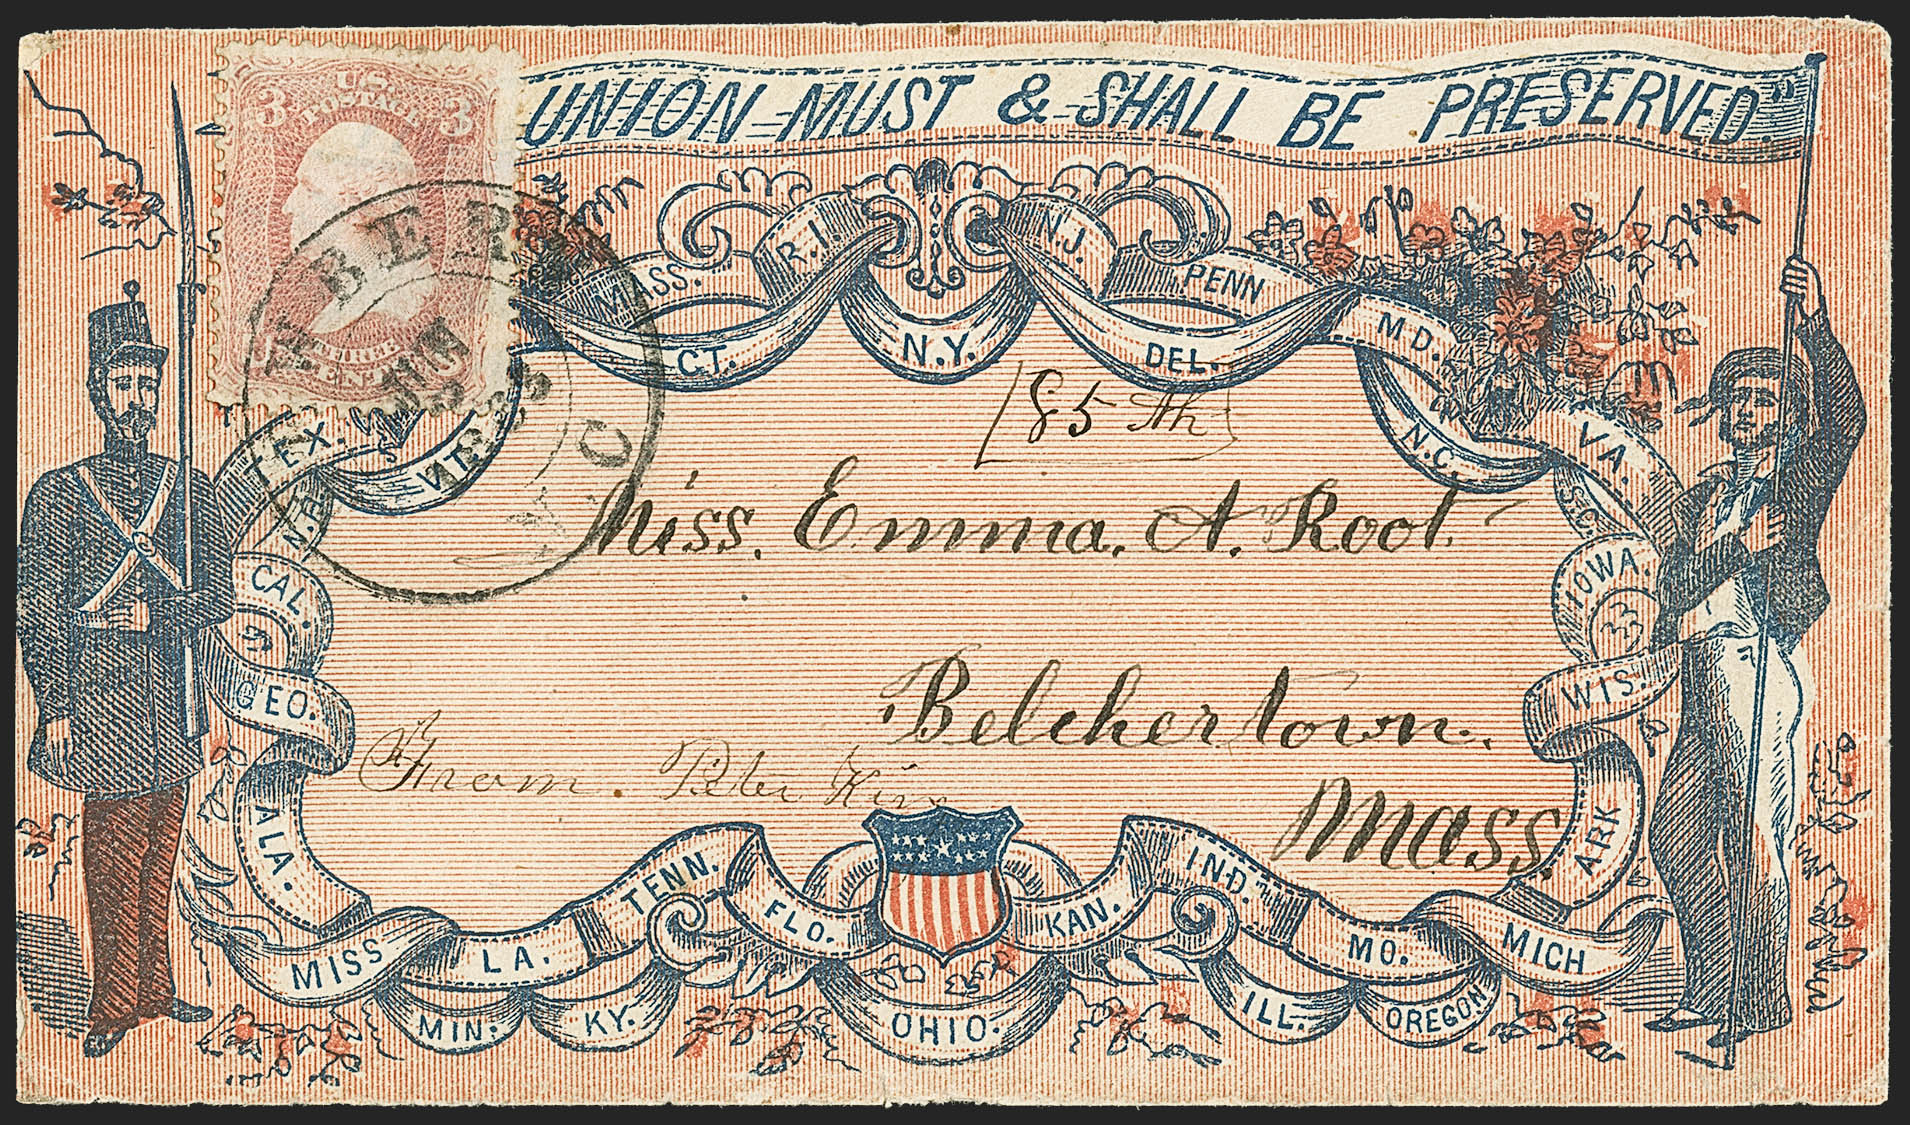 UNION MUST & SHALL BE PRESERVED."
U.S. POSTAGE
3 3
THREE CENTS
BERN
JUN
N.C.
MASS.
R.I.
N.J.
PENN
CT.
N.Y.
DEL.
M.D.
N.C.
VA.
S.C.
IOWA.
33
WIS.
ARK
MICH
OREGON
MO.
ILL.
IND.
KAN.
OHIO.
FLO.
TENN.
KY.
LA.
MIN.
MISS
ALA.
GEO.
CAL.
N.H.
EX.
85th
Miss. Emma. A. Root.
Belchertown.
Mass.
From. Peter